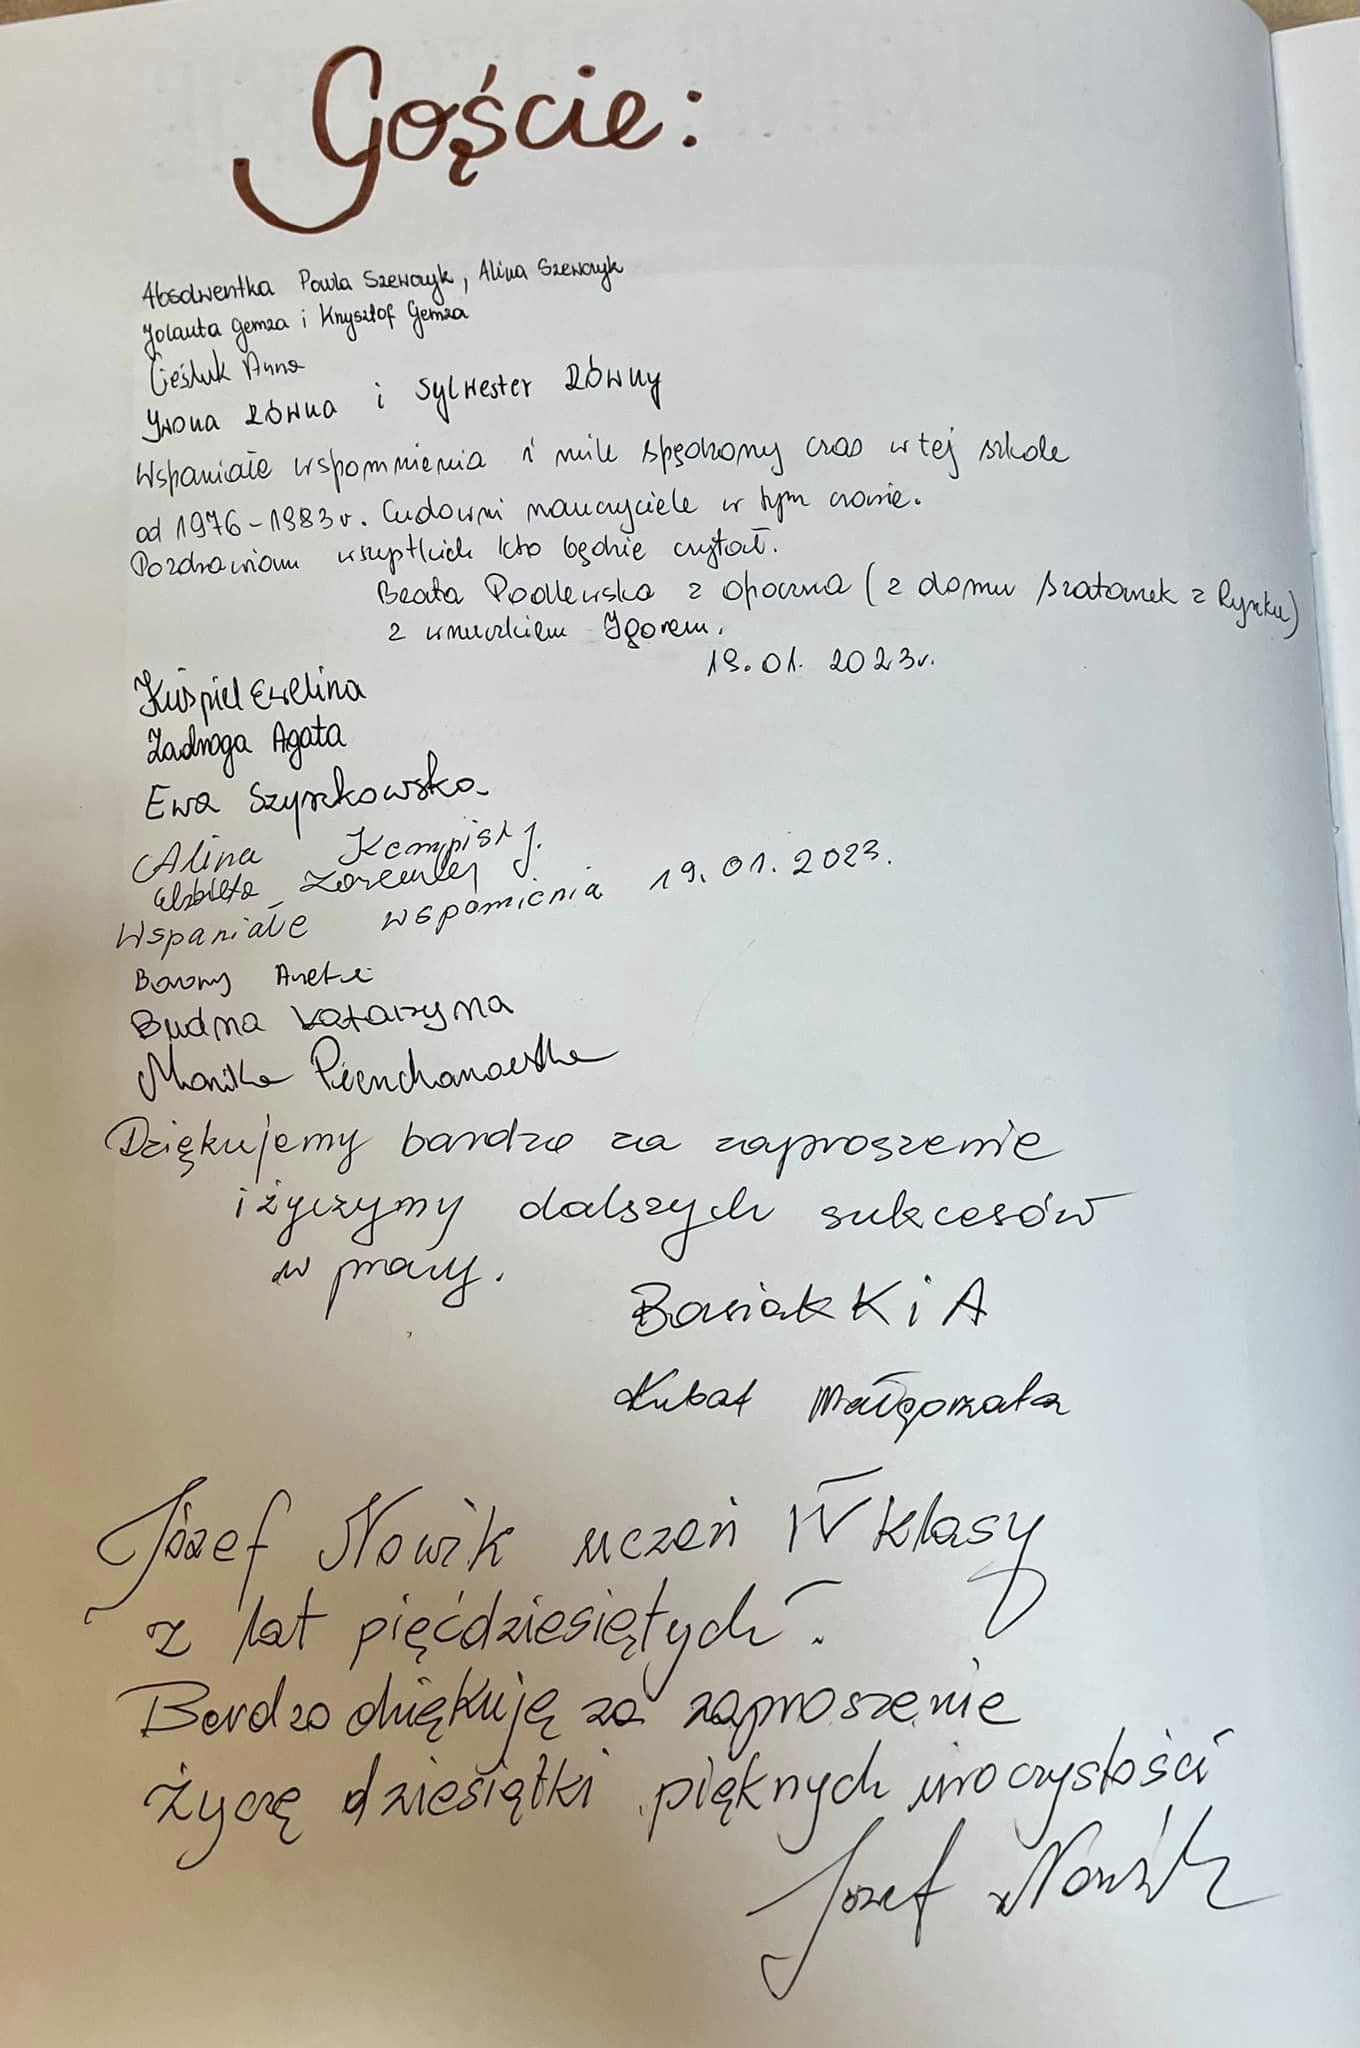 Goście:
Absolwentka Paula Szewczyk, Alina Szewczyk
Jolanta Gemza i Krzysztof Gemza
Cieśluk Anna
Iwona RÓWNA i Sylwester RÓWNY
Wspaniałe wspomnienia i mile spędzony czas w tej szkole
od 1976-1983r. Cudowni nauczyciele w tym czasie.
Pozdrawiam wszystkich kto będzie czytał.
Beata Podlewska z Opoczna (z domu Szatanek z Rynku)
z wnuczkiem Igorem.
19.01. 2023r.
Kuśpiel Ewelina
Zadroga Agata
Ewa Szyszkowska
Alina
Elżbieta
Wspaniałe wspomienia 19.01.2023.
Aneta
Budna Katarzyna
Monika
Dziękujemy bardzo za zaproszenie
i życzymy dalszych sukcesów
w pracy.
Basiak K i A
Kubat Małgorzata
Józef Nowik uczeń IV klasy
z lat pięćdziesiętych.
Bardzo dziękuję za zaproszenie
życzę dziesiątki pięknych uroczystości
Józef Nowik